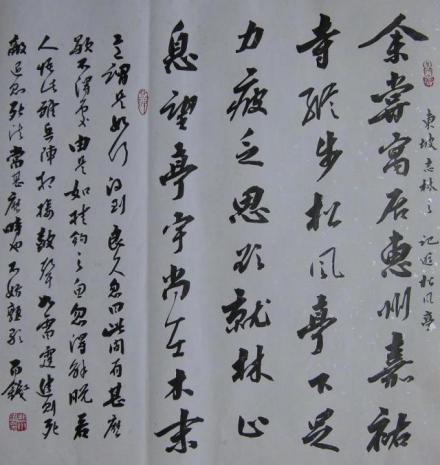 東坡志林之 記遊松风亭
余嘗寓居惠州嘉祐
寺縱步松風亭下足
力疲乏思欲就林止
息望亭宇尚在木末
意謂是如何得到良久忽曰此間有甚麽
歇不得處由是如挂鉤之魚忽得解脱若
人悟此雖兵陣相接鼓聲如雷霆進則死
敵退則死法當甚麽時也不妨熟歇